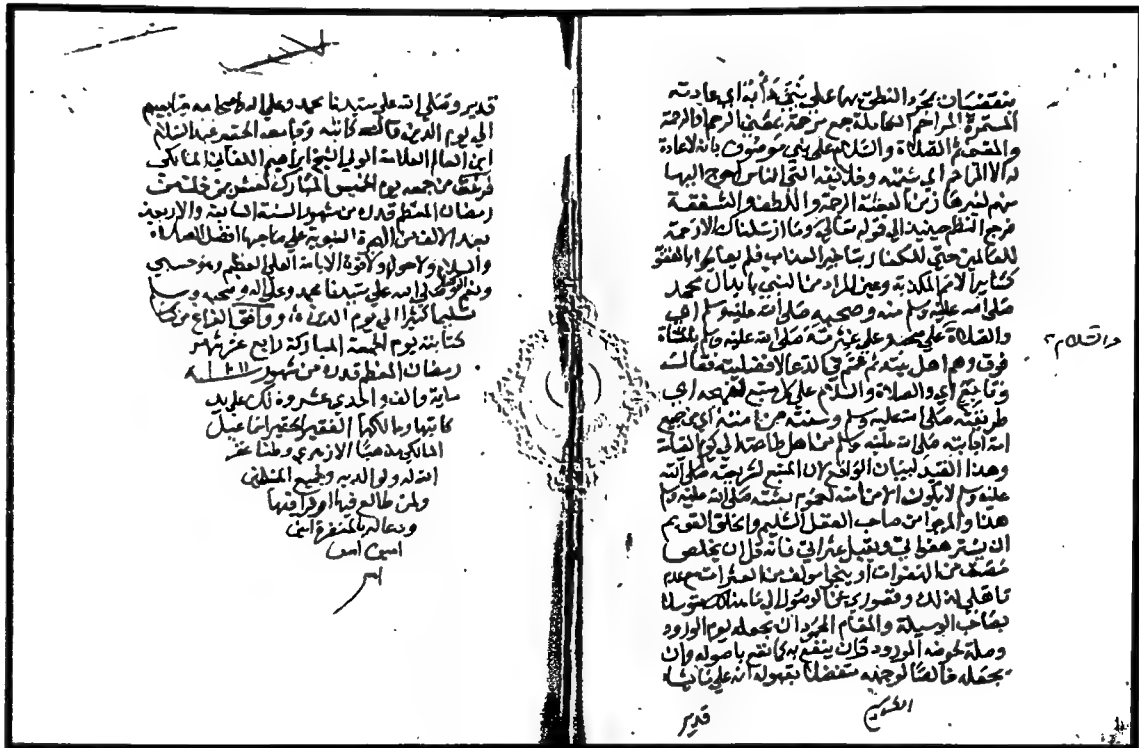 ينقضيان بمجرد النطق بها على نبي دأبه اي عادته
المستمرة المراحم الكاملة جمع مرحمة بمعنى الرحم او الرحمة
والمقصم الصلاة والسلام على نبي موصوف بانه لا عادة
له الا المراحم اي شيمته وخلائقه التي الناس احوج اليها
منهم لغيرها من العطية الرحمة واللطف والشفقة
فرجع النظم حينئذ الى قوله تعالى وما ارسلناك الا رحمة
للعالمين حتى للكفار بتاخير العذاب فلم يعاجلوا بالعقوبة
كسائر الامم المكذبة وعين المراد من النبي بابدال محمد
صلى الله عليه وسلم منه وصحبه صلى الله عليه وسلم اي
والصلاة على صحبه وعلى عترته صلى الله عليه وسلم بالمثناة
والسلام
فوق وهم اهل بيته ثم عمم في الدعا لافضليته فقال
وتابع اي والصلاة والسلام على كل متبع لنهجه اي
طريقته صلى الله عليه وسلم وسنته من امته اي جميع
امة اجابته صلى الله عليه وسلم من اهل طاعته الى يوم القيامة
وهذا القيد لبيان الواقع لان المتبع لشريعته صلى الله
عليه وسلم لا يكون الا من امته لعموم بعثته صلى الله عليه وسلم
هذا والمرجوا من صاحب العقل السليم والخلق القويم
ان يستر هفواتي ويقيل عثراتي فانه قل ان يخلص
مصنف من الهفوات او ينجوا مولف من العثرات مع عدم
تاهلي لذلك وقصوري عن الوصول الى ما هنالك متوسلا
بصاحب الوسيلة والمقام المحمود ان يجعله يوم الورود
وصلة لحوضه المورود وان ينفع به كما نفع باصوله وان
يجعله خالصا لوجهه متفضلا بقبوله انه على ما يشاء
قدير
قدير وصلى الله على سيدنا محمد وعلى اله واصحابه وتابعيهم
الى يوم الدين قال كاتبه وجامعه الحقير عبد السلام
ابن العالم العلامة الولي الشيخ ابراهيم اللقاني المالكي
فرغت من جمعه يوم الخميس المبارك لعشر من خلت من
رمضان المعظم قدره من شهور السنة السابعة والاربعين
بعد الالف من الهجرة النبوية على صاحبها افضل الصلاة
والسلام ولا حول ولا قوة الا بالله العلي العظيم وهو حسبي
ونعم الوكيل وصلى الله على سيدنا محمد وعلى اله وصحبه وسلم
تسليما كثيرا الى يوم الدين، ووافق الفراغ من
كتابته يوم الجمعة المباركة رابع عشر شهر
رمضان المعظم قدره من شهور سنة ١١١١
ماية والف والحدي عشرة وذلك على يد
كاتبها ومالكها الفقير الحقير اسماعيل
المالكي مذهبا الازهري وطنا غفر
الله له ولوالديه ولجميع المسلمين
ولمن طالع فيها او قرا فيها
ودعا له بالمغفرة امين
امين امين